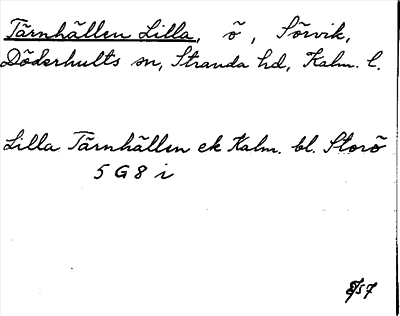 Tärnhällen Lilla, ö, Sörvik,
Döderhults sn, Stranda hd, Kalm. l.
Lilla Tärnhällen ek Kalm. bl. Storö
5 G 8 i